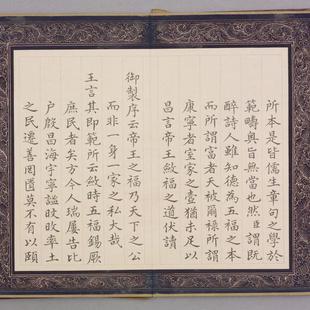 所本是皆儒生章句之學於
範疇奥旨無當也然臣謂既
醉詩人雖知德為五福之本
而所謂富者天被爾祿所謂
康寧者室家之壼猶未足以
昌言帝王斂福之道伏讀
御製序云帝王之福乃天下之公
而非一身一家之私大哉
王言其即範所云斂時五福錫厥
庶民者矣方今人瑞屢告比
户殷昌海宇寧謐攸攸率土
之民遷善罔匱莫不有以頤